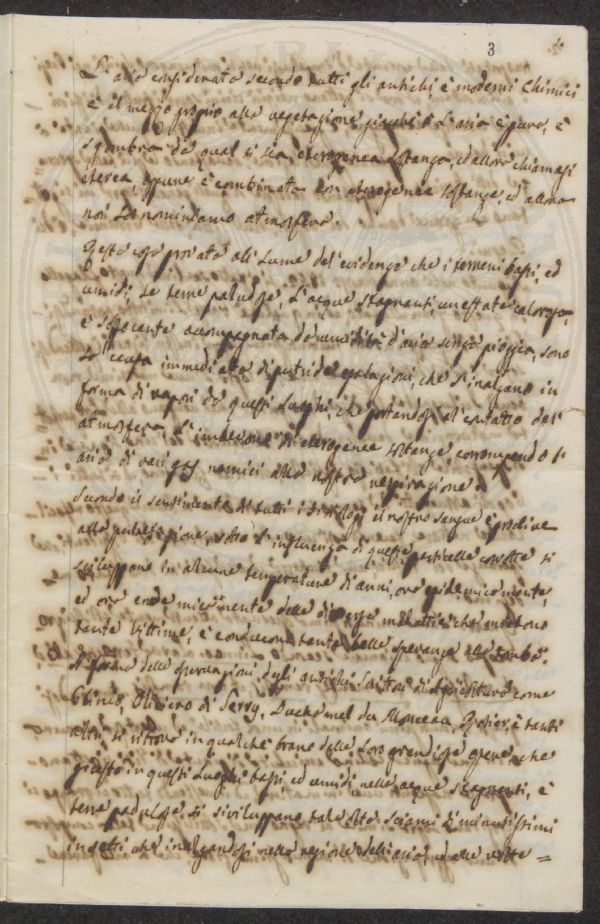 3
L'aria considerata secondo tutti gli antichi, è moderni Chimici
è il mezzo proprio alla vegetazione, giacchè ò l'aria è pura, è
sgombra da qual si sia eterogenea sostanza, ed allora chiamasi
eterea, oppure è combinata con eterogenee sostanze, ed allora
noi la nominiamo atmosfera.
Questa cosa provata al lume del evidenza che i terreni bassi, ed
umidi, le terre paludose, l'acque stagnanti, un estate calorosa,
è soffocante accompagnata da umidità d'aria senza pioggia, sono
la causa immediata di putride esalazioni, che s'inalzano in
forma di vapori da questi luoghi, che portandosi al contatto del
atmosfera, di eterogenee sostanze, corrompendo l'
aria di vari gas nemici alla nostra respirazione.
Secondo il sentimento di tutti i fisiologi il nostro sangue è proclive
alla putrefazione, sotto l'influenza di queste particelle corrotte si
sviluppano in alcune temperature d'anni, ora epidemicamente,
ed ora endemicamente delle diverse malattie che mietono
tante vittime, è conducono tante belle speranze alla tomba.
A forma delle osservazioni degli antichi Scrittori di Agricoltura come
Plinio, Oliviero di Serry, Duchamel du Monceau, Rosier, è tanti
altri si ritrova in qualche brano delle loro grandiose opere, che
giusto in questi luoghi bassi, ed umidi, nelle acque stagnanti, è
terre padulose si sviluppano tale volta sciami di minutissimi
insetti, che inalzandosi nella regione dell'aria, ed alle volte =